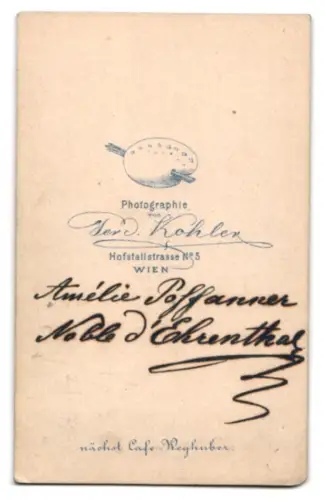 Photographie
von
Ferd. Kohler
Hofstallstrasse No 5
WIEN
Amélie Poffanner
Noble d'Ehrenthal
nächst Cafe Weghuber.